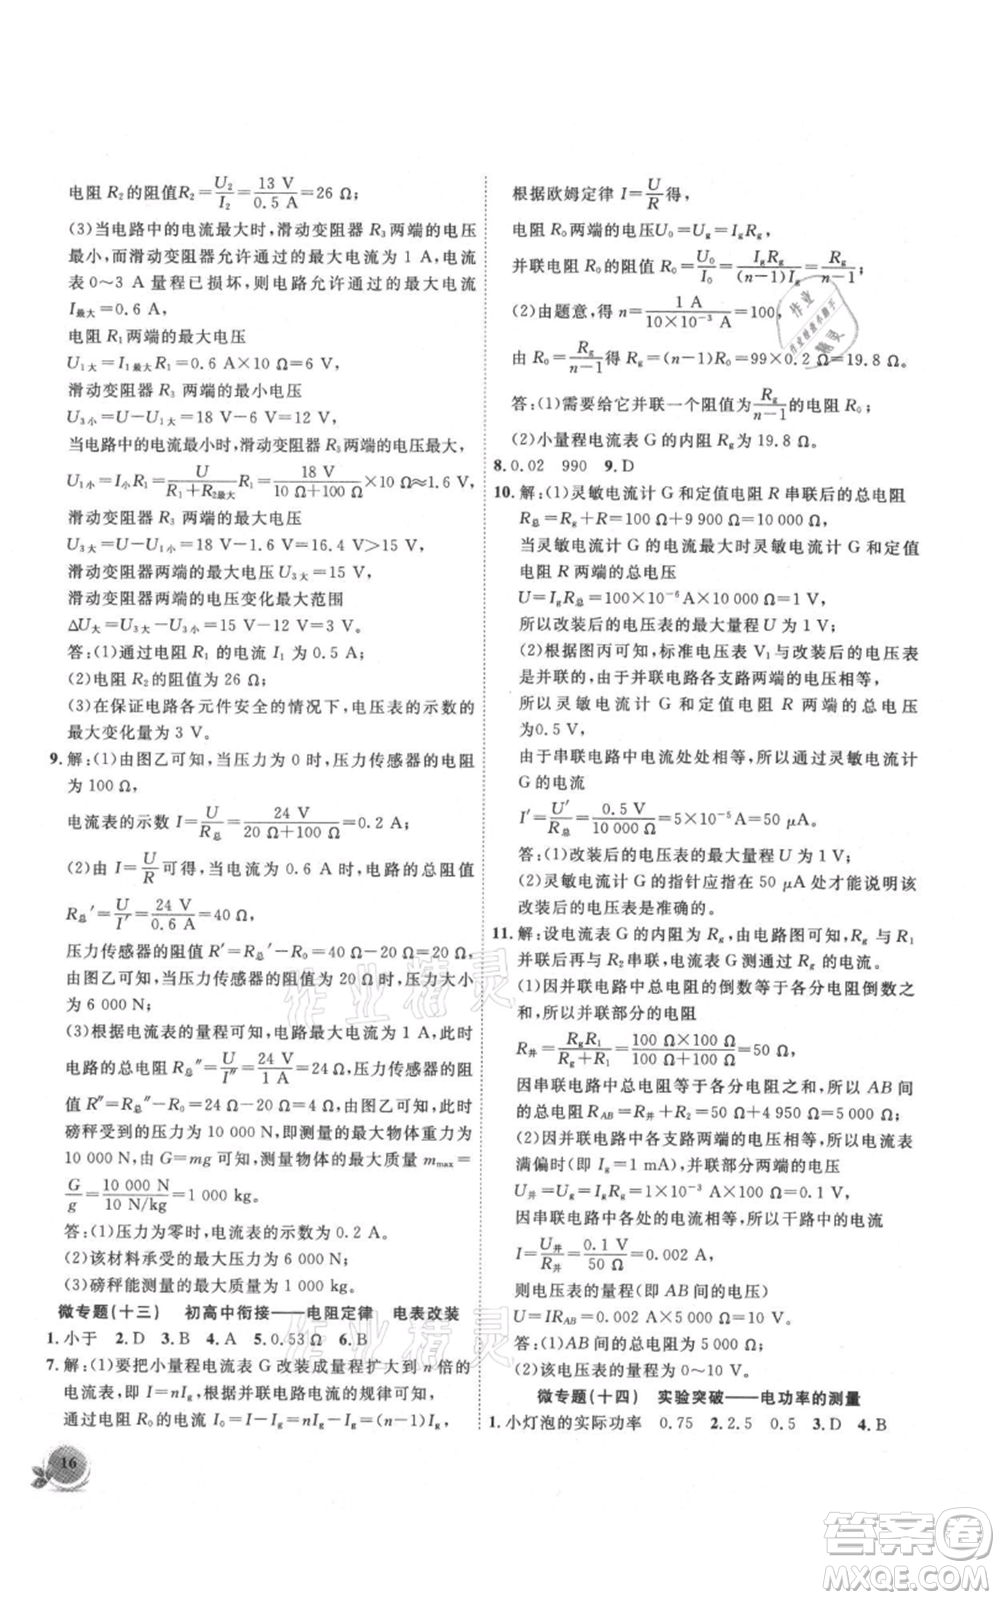 电阻 R₂的阻值R₂=U₂/I₂=13 V/0.5 A=26 Ω;
(3)当电路中的电流最大时,滑动变阻器 R₃两端的电压
最小,而滑动变阻器允许通过的最大电流为 1 A,电流
表 0~3 A 量程已损坏,则电路允许通过的最大电流
I最大=0.6 A,
电阻 R₁两端的最大电压
U₁大=I₁最大R₁=0.6 A×10 Ω=6 V,
滑动变阻器 R₃ 两端的最小电压
U₃小=U-U₁大=18 V-6 V=12 V,
当电路中的电流最小时,滑动变阻器 R₃两端的电压最大,
U₁小=I小R₁=U/(R₁+R₂最大)R₁=18 V/(10 Ω+100 Ω)×10 Ω≈1.6 V,
滑动变阻器 R₃ 两端的最大电压
U₃大=U-U₁小=18 V-1.6 V=16.4 V>15 V,
滑动变阻器两端的最大电压 U₃大=15 V,
滑动变阻器两端的电压变化最大范围
ΔU大=U₃大-U₃小=15 V-12 V=3 V.
答:(1)通过电阻 R₁ 的电流 I 为 0.5 A;
(2)电阻 R₂ 的阻值为 26 Ω;
(3)在保证电路各元件安全的情况下,电压表的示数的
最大变化量为 3 V。
9.解:(1)由图乙可知,当压力为 0 时,压力传感器的电阻
为 100 Ω,
电流表的示数 I=U/R总=24 V/(20 Ω+100 Ω)=0.2 A;
(2)由 I=U/R可得,当电流为 0.6 A 时,电路的总阻值
R总′=U/I′=24 V/0.6 A=40 Ω,
压力传感器的阻值 R′=R总′-R₀=40 Ω-20 Ω=20 Ω,
由图乙可知,当压力传感器的阻值为 20 Ω 时,压力大小
为 6 000 N;
(3)根据电流表的量程可知,电路最大电流为 1 A,此时
电路的总电阻 R总″=U/I″=24 V/1 A=24 Ω,压力传感器的阻
值 R″=R总″-R₀=24 Ω-20 Ω=4 Ω,由图乙可知,此时
磅秤受到的压力为 10 000 N,即测量物体的最大重力为
10 000 N,由 G=mg 可知,测量物体的最大质量 mmax=
G/g=10 000 N/10 N/kg=1 000 kg。
答:(1)压力为零时,电流表的示数为 0.2 A;
(2)该材料承受的最大压力为 6 000 N;
(3)磅秤能测量的最大质量为 1 000 kg。
微专题(十三) 初高中衔接——电阻定律 电表改装
1.小于 2.D 3.B 4.A 5.0.53 Ω 6.B
7.解:(1)要把小量程电流表 G 改装成量程扩大到 n 倍的
电流表,即 I=nIg,根据并联电路电流的规律可知,
通过电阻 R₀ 的电流 I₀=I-Ig=nIg-Ig=(n-1)Ig,
16
根据欧姆定律 I=U/R得,
电阻 R₀两端的电压U₀=Ug=IgRg,
并联电阻 R₀的阻值R₀=U₀/I₀=IgRg/(n-1)Ig=Rg/(n-1);
(2)由题意,得 n=1 A/10×10⁻³ A=100,
由 R₀=Rg/(n-1)得 Rg=(n-1)R₀=99×0.2 Ω=19.8 Ω。
答:(1)需要给它并联一个阻值为Rg/(n-1)的电阻 R₀;
(2)小量程电流表 G 的内阻 Rg为 19.8 Ω。
8.0.02 990 9.D
10.解:(1)灵敏电流计 G 和定值电阻 R 串联后的总电阻
R总=Rg+R=100 Ω+9 900 Ω=10 000 Ω,
当灵敏电流计 G 的电流最大时灵敏电流计 G 和定值
电阻 R 两端的总电压
U=IgR总=100×10⁻⁶A×10 000 Ω=1 V,
所以改装后的电压表的最大量程 U 为 1 V;
(2)根据图丙可知,标准电压表 V₁与改装后的电压表
是并联的,由于并联电路各支路两端的电压相等,
所以灵敏电流计 G 和定值电阻 R 两端的总电压
为0.5 V,
由于串联电路中电流处处相等,所以通过灵敏电流计
G 的电流
I′=U′/R总=0.5 V/10 000 Ω=5×10⁻⁵A=50 μA。
答:(1)改装后的电压表的最大量程 U 为 1 V;
(2)灵敏电流计 G 的指针应指在 50 μA 处才能说明该
改装后的电压表是准确的。
11.解:设电流表 G 的内阻为 Rg,由电路图可知,Rg与 R₁
并联后再与 R₂串联,电流表 G 测量通过 Rg的电流。
(1)因并联电路中总电阻的倒数等于各分电阻倒数之
和,所以并联部分的电阻
R并=RgR₁/(Rg+R₁)=100 Ω×100 Ω/(100 Ω+100 Ω)=50 Ω,
因串联电路中总电阻等于各分电阻之和,所以 AB 间
的总电阻 RAB=R并+R₂=50 Ω+4 950 Ω=5 000 Ω;
(2)因并联电路中各支路两端的电压相等,所以电流表
满偏时(即 Ig=1 mA),并联部分两端的电压
U并=Ug=IgRg=1×10⁻³A×100 Ω=0.1 V,
因串联电路中各处的电流相等,所以干路中的电流
I=U并/R并=0.1 V/50 Ω=0.002 A,
则电压表的量程(即 AB 间的电压)
U=IRAB=0.002 A×5 000 Ω=10 V。
答:(1)AB间的总电阻为 5 000 Ω;
(2)该电压表的量程为 0~10 V。
微专题(十四) 实验突破——电功率的测量
1.小灯泡的实际功率 0.75 2.2.5 0.5 3.D 4.B
作业精灵
作业精灵
答案卷
MXQE.COM